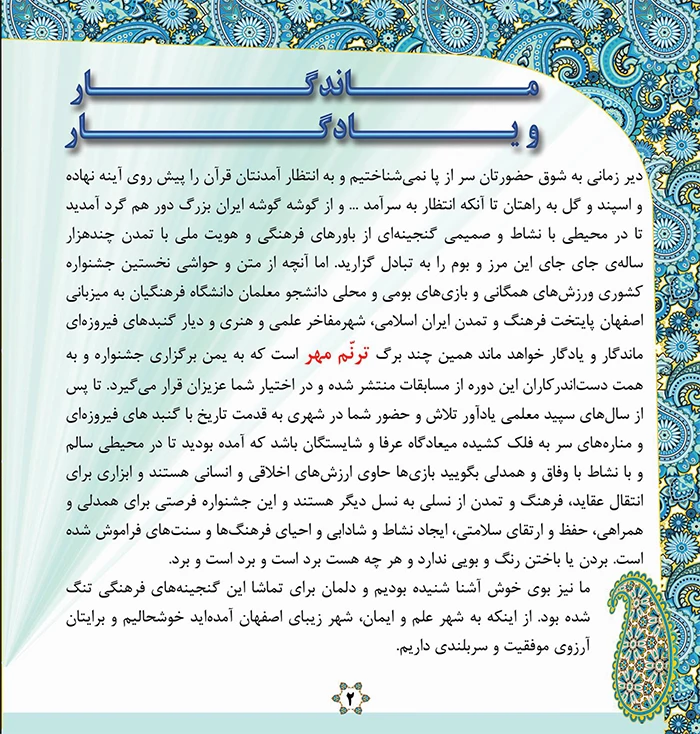 مــانـدگـــــار
و یـــادگـــــار
دیر زمانی به شوق حضورتان سر از پا نمی‌شناختیم و به انتظار آمدنتان قرآن را پیش روی آینه نهاده
و اسپند و گل به راهتان تا آنکه انتظار به سرآمد ... و از گوشه گوشه ایران بزرگ دور هم گرد آمدید
تا در محیطی با نشاط و صمیمی گنجینه‌ای از باورهای فرهنگی و هویت ملی با تمدن چندهزار
ساله‌ی جای جای این مرز و بوم را به تبادل گزارید. اما آنچه از متن و حواشی نخستین جشنواره
کشوری ورزش‌های همگانی و بازی‌های بومی و محلی دانشجو معلمان دانشگاه فرهنگیان به میزبانی
اصفهان پایتخت فرهنگ و تمدن ایران اسلامی، شهرمفاخر علمی و هنری و دیار گنبدهای فیروزه‌ای
ماندگار و یادگار خواهد ماند همین چند برگ ترنّم مهر است که به یمن برگزاری جشنواره و به
همت دست‌اندرکاران این دوره از مسابقات منتشر شده و در اختیار شما عزیزان قرار می‌گیرد. تا پس
از سال‌های سپید معلمی یادآور تلاش و حضور شما در شهری به قدمت تاریخ با گنبد های فیروزه‌ای
و مناره‌های سر به فلک کشیده میعادگاه عرفا و شایستگان باشد که آمده بودید تا در محیطی سالم
و با نشاط با وفاق و همدلی بگویید بازی‌ها حاوی ارزش‌های اخلاقی و انسانی هستند و ابزاری برای
انتقال عقاید، فرهنگ و تمدن از نسلی به نسل دیگر هستند و این جشنواره فرصتی برای همدلی و
همراهی، حفظ و ارتقای سلامتی، ایجاد نشاط و شادابی و احیای فرهنگ‌ها و سنت‌های فراموش شده
است. بردن یا باختن رنگ و بویی ندارد و هر چه هست برد است و برد است و برد.
ما نیز بوی خوش آشنا شنیده بودیم و دلمان برای تماشا این گنجینه‌های فرهنگی تنگ
شده بود. از اینکه به شهر علم و ایمان، شهر زیبای اصفهان آمده‌اید خوشحالیم و برایتان
آرزوی موفقیت و سربلندی داریم.
۲